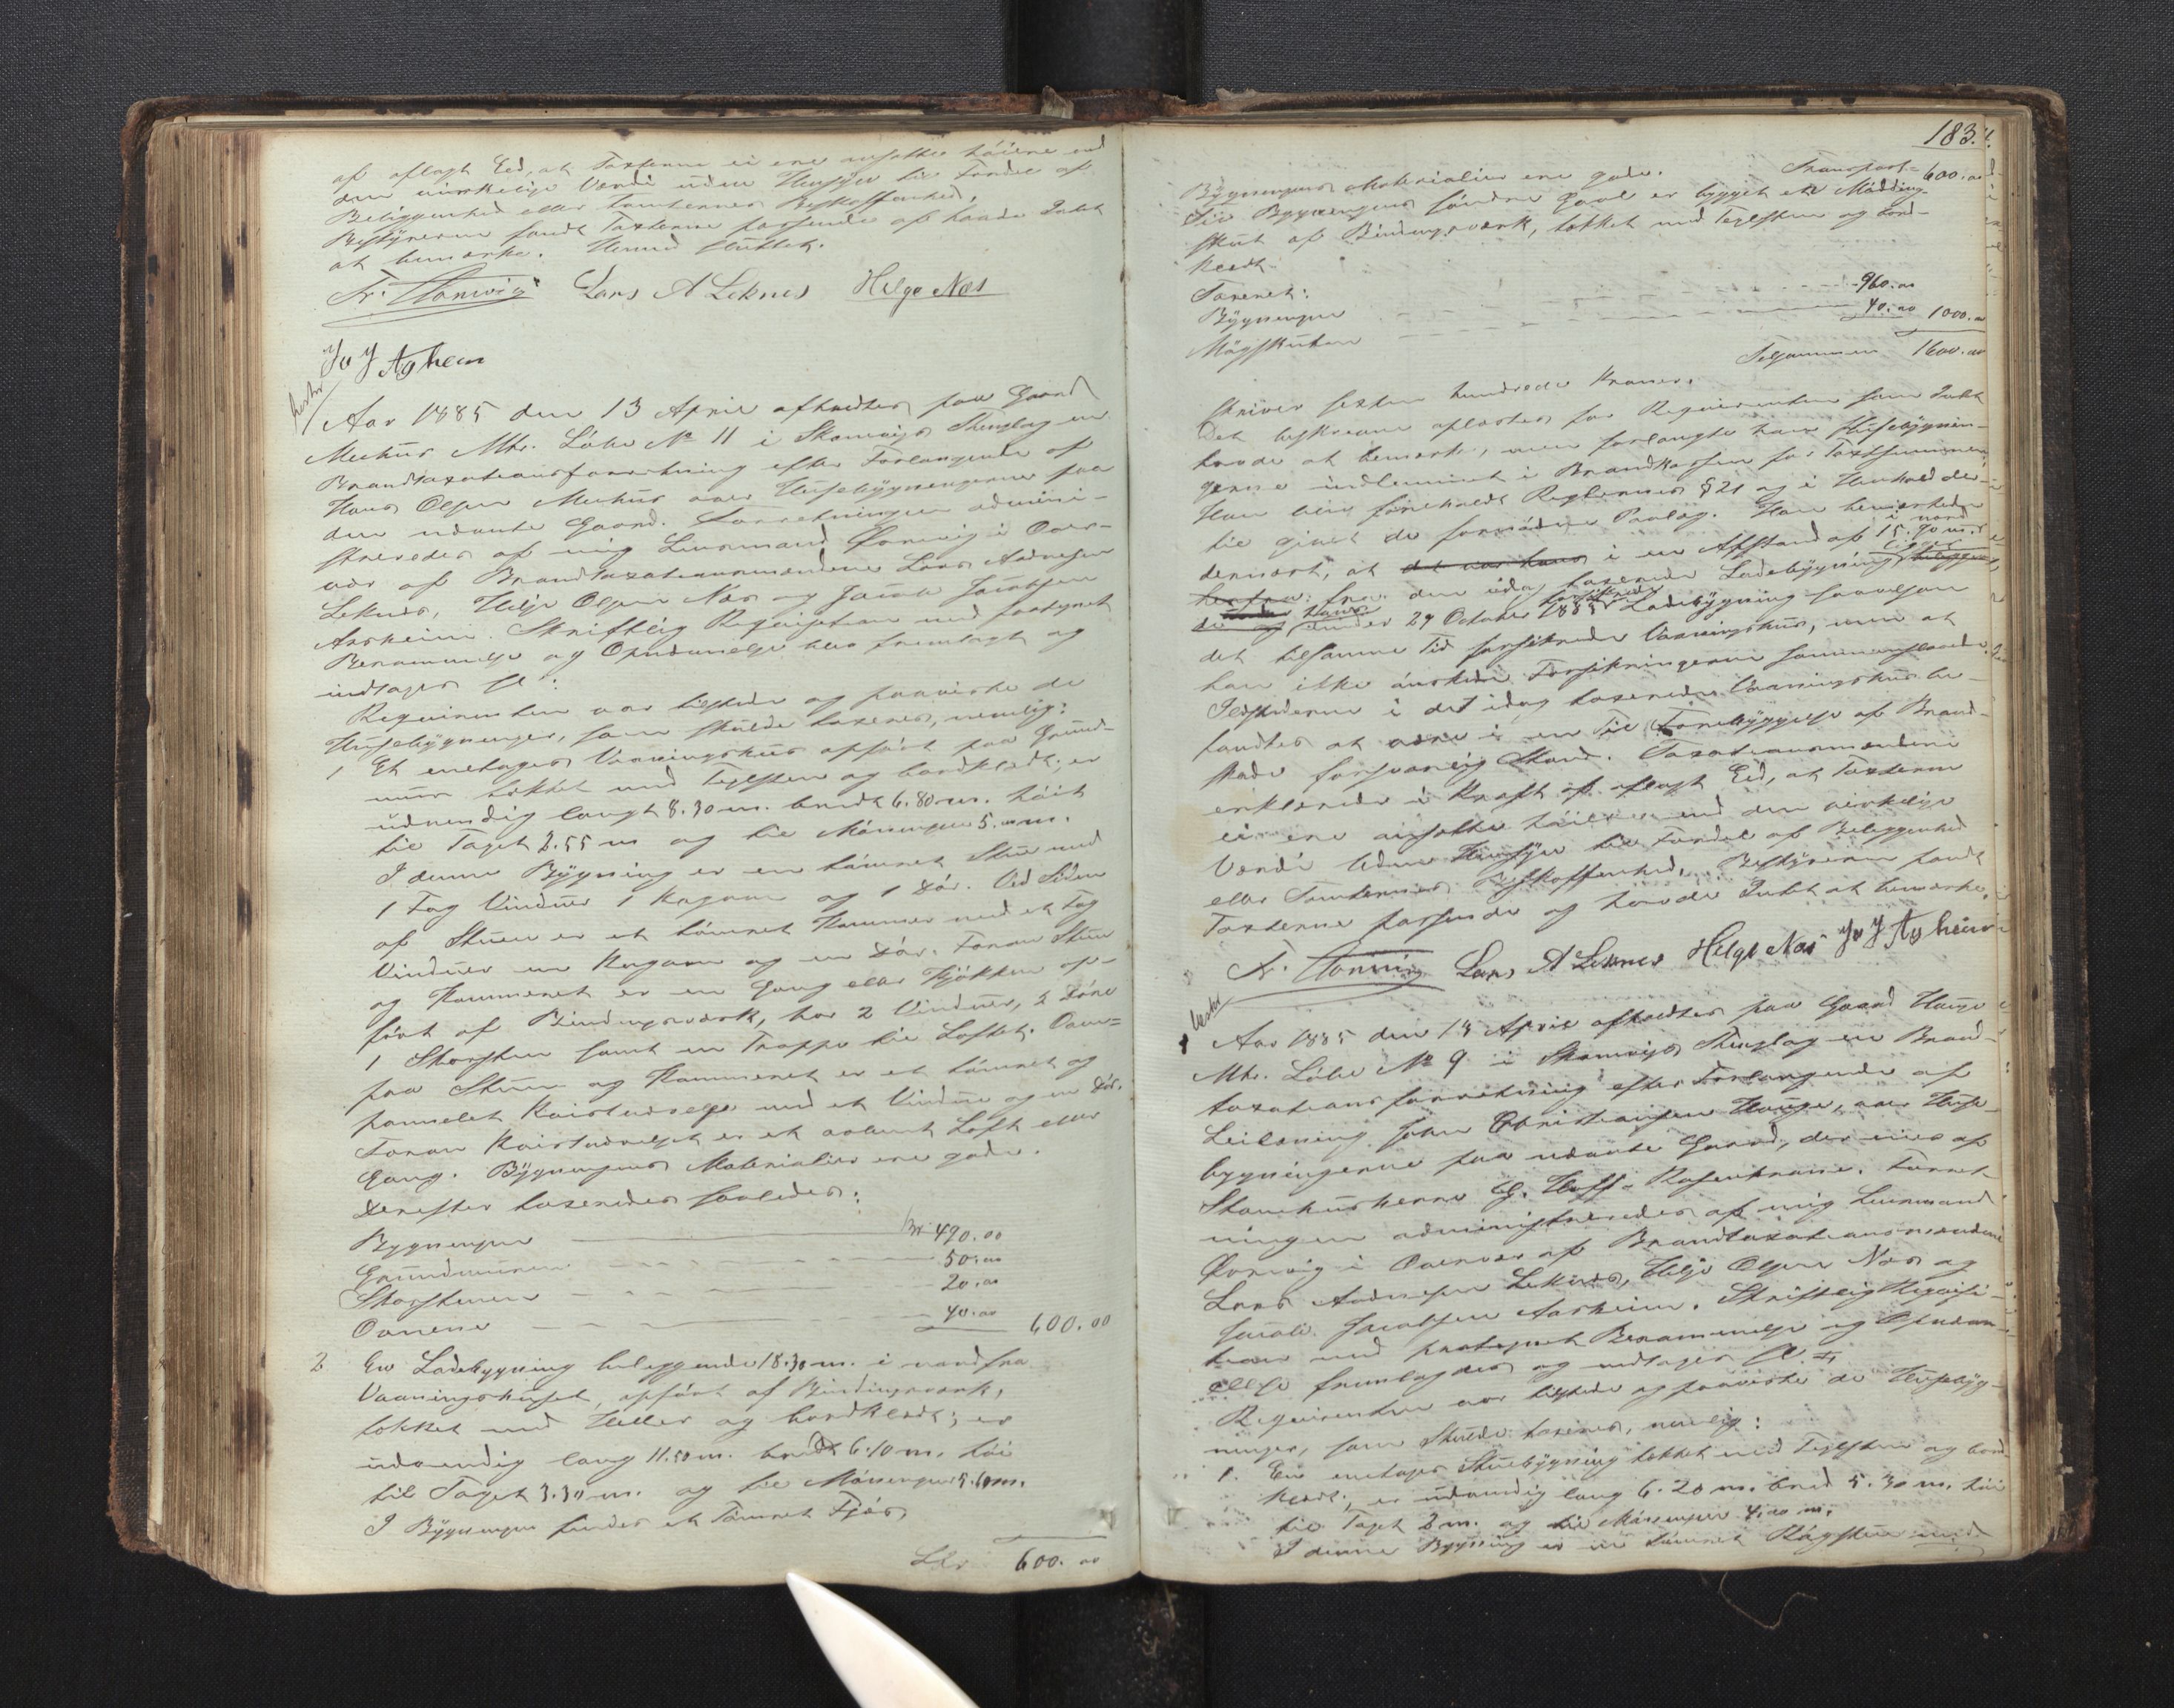 af aflagt Eed, at Taxterne ei ere ansatte höiere end
den virkelige Værdi uden Hensyn til Fordel af
Beliggenhed eller Tomternes Beskaffenhed.
Bestyreren fandt Taxterne passende og havde Intet
at bemærke. Hermed sluttet.
Fr. Lars A Leknes Helge Næs
J J Aghein
Aar 1885 den 13 April afholdtes paa Gaard
Meehus Mtr. Löbe No 11 i Thinglag en
Brandtaxationsforretning efter Forlangende af
Hans Olsen Meehus over Husebygningerne paa
den nævnte Gaard. Forretningen admini-
streredes af mig Lensmand i Over-
vær af Brandtaxationsmændene Lars Andersen
Leknes, Helge Olsen Næs og Jacob Jacobsen
Aarheim. Skriftlig Reqvisition med paategnet
Berammelse og Opnævnelse blev fremlagt og
indtages
Reqvirenten var tilstede og paaviste de
Husebygninger, som skulde taxeres, nemlig:
1 Et enetages Vaaningshus opfört paa Grund-
muur tækket med Teglsteen og bordklædt; er
udvendig langt 8.30 m. bredt 6.80 m. höit
til Taget 2.55 m og til Mönningen 5. m.
I denne Bygning er en tömret Stue med
1 Fag Vinduer 1 Kogovn og 1 Dör. Ved Siden
af Stuen er et tömret Kammer med et Fag
Vinduer en Kogovn og en Dör. Foran Stuen
og Kammeret er en Gang eller Kjökken op-
fört af Bindingsværk, har 2 Vinduer, 2 Döre
1 Skorsten samt en Trappe til Loftet. Oven-
paa Stuen og Kammeret er et tömret og
pannelet Kvistværelse med et Vindue og en Dör.
Foran Kvistværelset er et aabent Loft eller
Gang. Bygningens Materialier ere gode.
Derefter taxeredes saaledes:
Bygningen Kr 490.00
Grundmuren 50.00
Skorstenen 20.00
Ovnene 40.00 600.00
2 En Ladebygning beliggende 18.30 m. i nord fra
Vaaningshuset, opfört af Bindingsværk,
tækket med Heller og bordklædt; er
udvendig lang 11.50 m. bredt 6.10 m. höi
til Taget 3.30 m. og til Mönningen 5.60 m.
I Bygningen findes et Tömret Fjös
600.00
183.
Transport 600.00
Bygningens Materialier ere gode.
Til Bygningens söndre Gavl er bygget et Mödding-
skut af Bindingsværk, tækket med Teglsteen og bord-
klædt.
Taxeret:
Bygningen 960.00
Mögskuten 40.00 1000.00
Tilsammen 1600.00
Skriver sexten hundrede Kroner.
Det beskrevne oplæstes for Reqvirenten som Intet
havde at bemærke, men forlangte han Husebygnin-
gerne indlemmet i Brandkassen for Taxtsummen.
Han blev foreholdt Reglernes § 21 og i Henhold der-
til givet de fornödne Paalæg. Han bemærkede
dernæst, at det var hans i en Afstand af 15.70 m. i nord
fra den idag taxerede Ladebygning ligger
den under 29 October 1883 forsikrede Ladebygning saavelsom
det tilsamme Tid forsikrede Vaaningshus, men at
han ikke önskede Forsikringerne sammenslaaede.
Ildstederne i det idag taxerede Vaaningshus be-
fandtes at være i en til Forebyggelse af Brand-
skade forsvarlig Stand. Taxationsmændene
erklærede i Kraft af aflagt Eed, at Taxterne
ei ere ansatte höiere end den virkelige
Værdi Uden Hensyn til Fordel af Beliggenhed
eller Tomternes Beskaffenhed. Bestyreren fandt
Taxterne passende og havde Intet at bemærke.
Fr. Lars A Leknes Helge Næs J J Aghein
Aar 1885 den 14 April afholdtes paa Gaard Hauge
Mtr. Löbe No 9 i Thinglag en Brand-
taxationsforretning efter Forlangende af
Leilænding John Christiansen Hauge, over Huse-
bygningerne paa nævnte Gaard, der eies af
Stamhusherre G. Hoff-Rosenkrone. Forret-
ningen administreredes af mig Lensmand
i Overvær af Brandtaxationsmændene
Lars Andersen Leknes, Helge Olsen Næs og
Jacob Jacobsen Aarheim. Skriftlig Reqvisi-
tion med paategnet Berammelse og Opnævn-
else fremlagdes og indtages
Reqvirenten var tilstede og paaviste de Husebyg-
ninger, som skulde taxeres, nemlig:
1. En enetages Stuebygning tækket med Teglsteen og bord-
klædt; er udvendig lang 6.20 m. bred 5.30 m. höi
til Taget 2 m. og til Mönningen 4.00 m.
I denne Bygning er en tömret Rögstue med